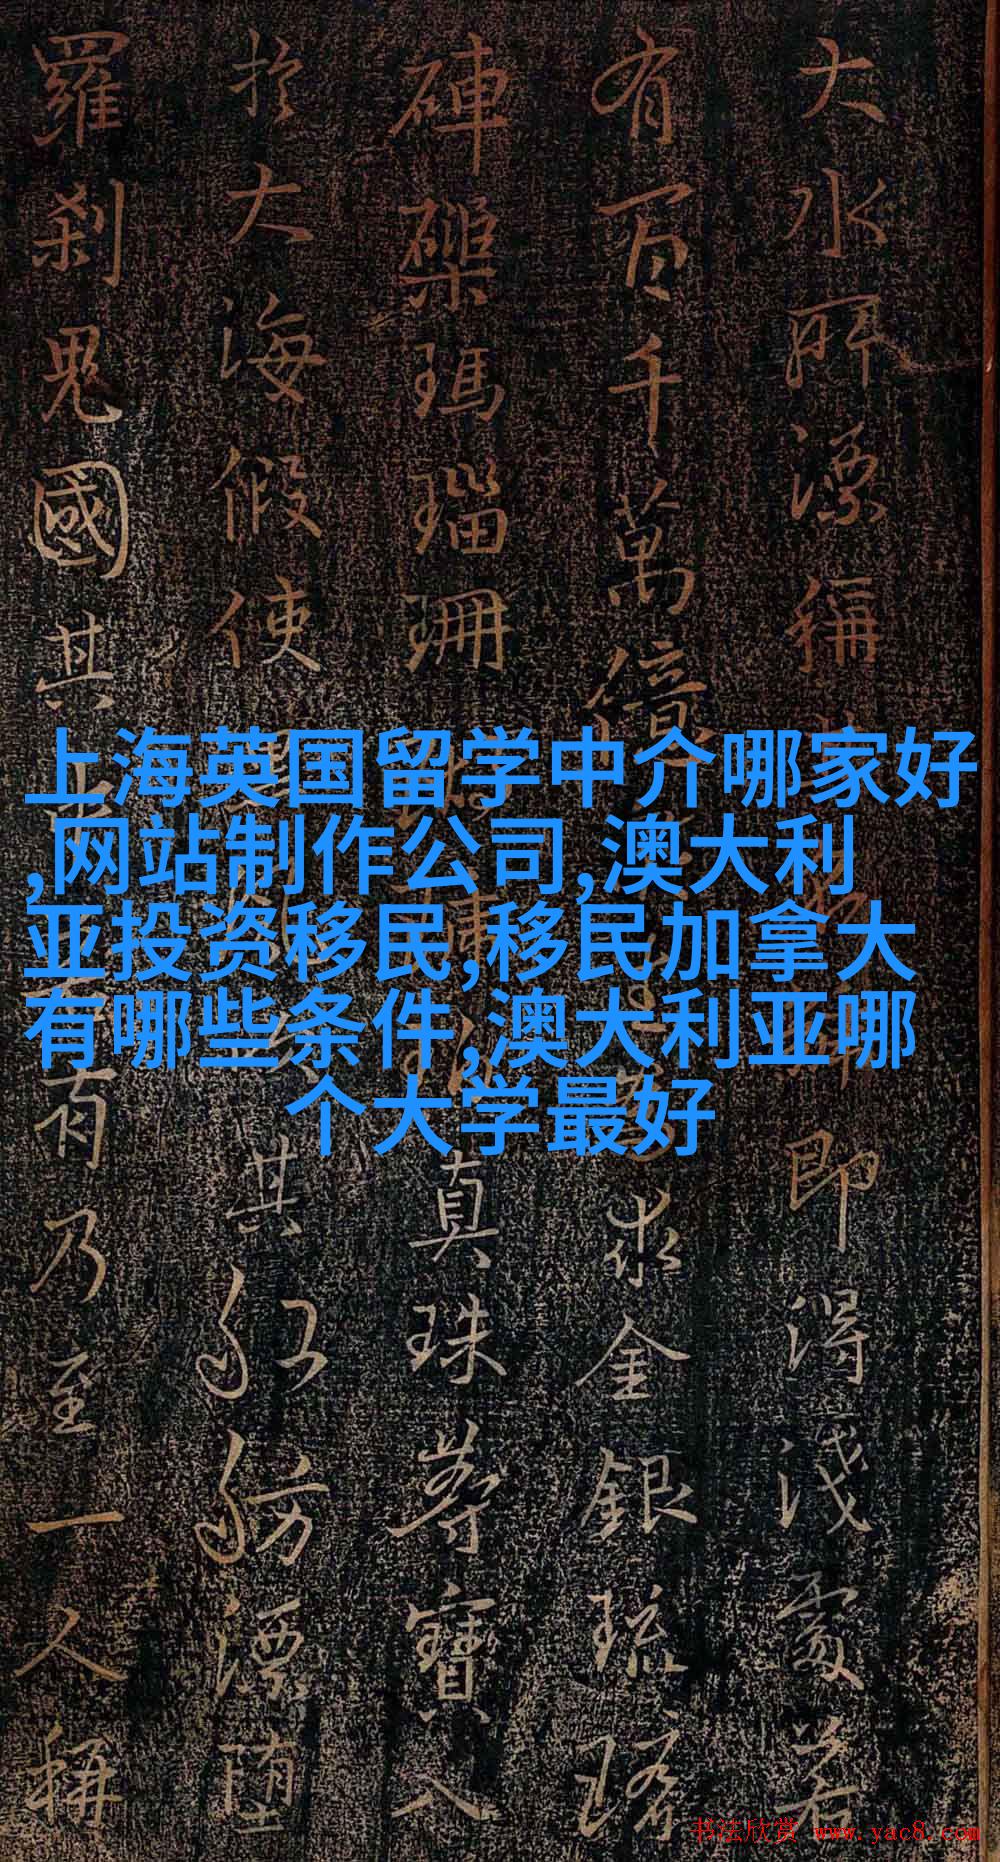 大水所漂稱即得淺處若
有百千萬億求金銀琉璃
硨磲瑪瑙珊真珠等寶入
於大海假使其舡舫漂墮
羅剎鬼國其有乃至一人稱
上海英国留学中介哪家好
,网站制作公司,澳大利
亚投资移民,移民加拿大
有哪些条件,澳大利亚哪
个大学最好
书法欣赏 www.yac8.com